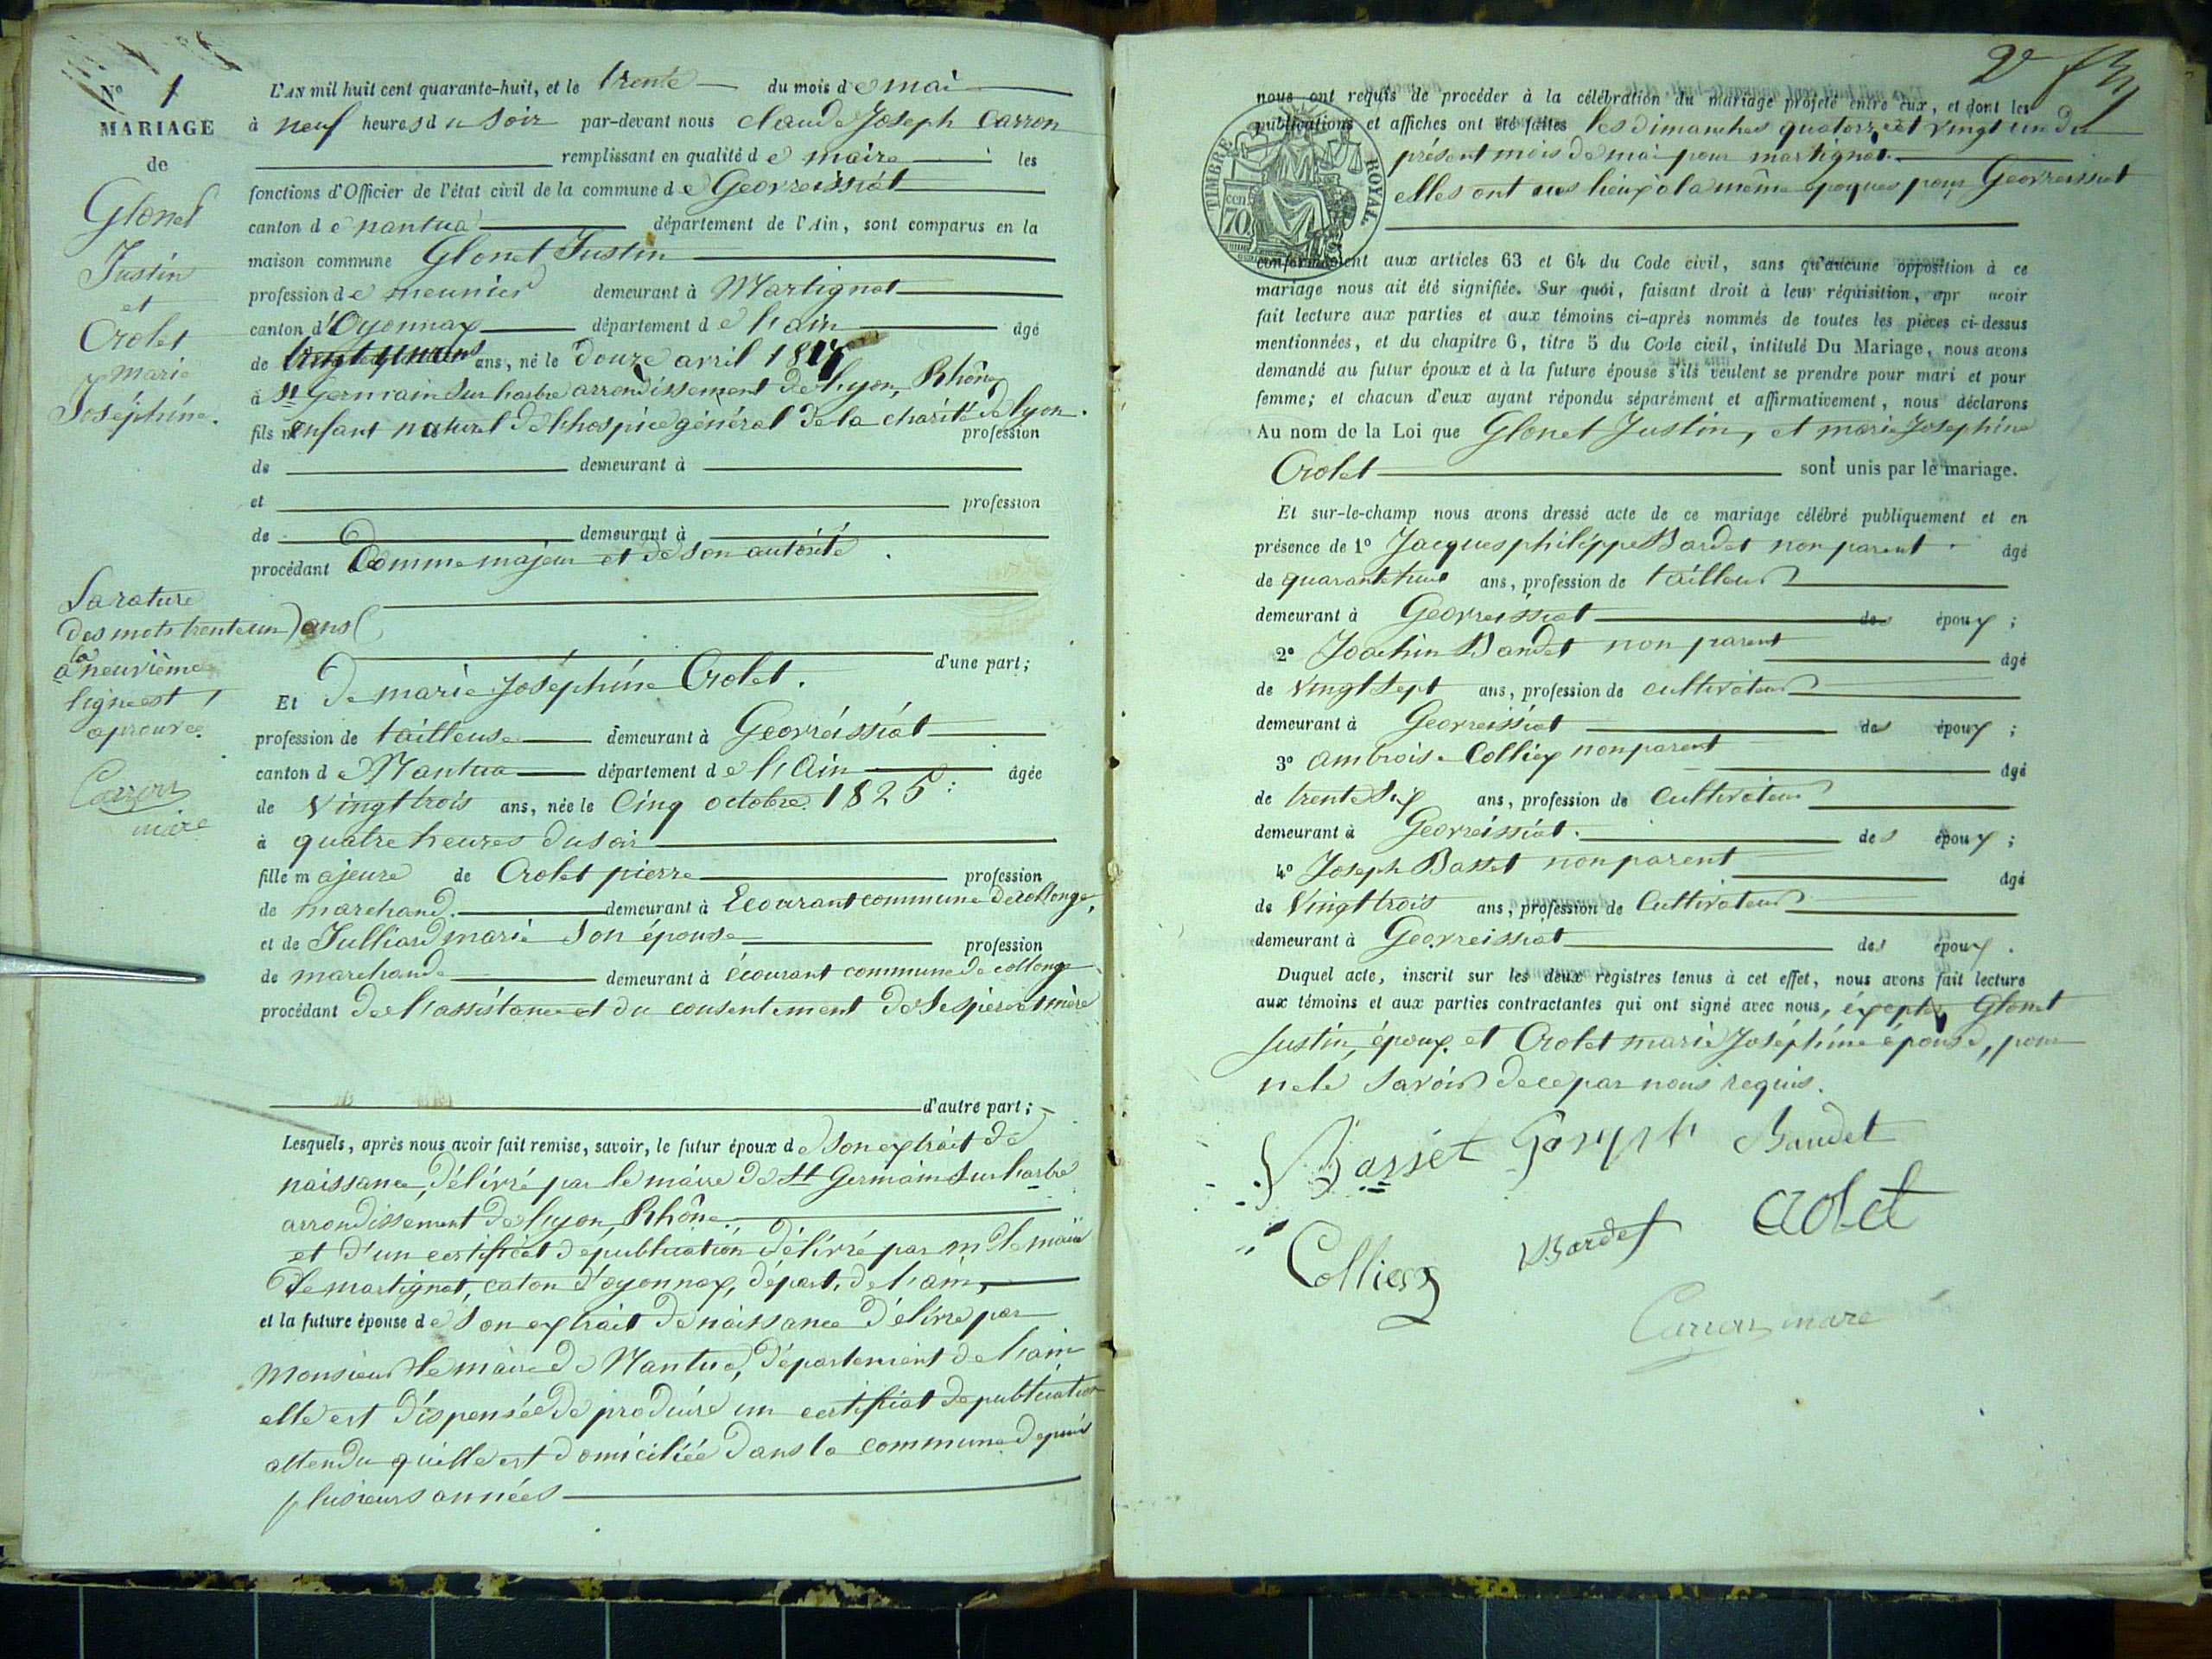 N° 1
MARIAGE
de
Glonet
Justin
et
Crolet
marie
Joséphine.
La rature
des mots trente un) ans (
a la neuvième
ligne est
aprouvée.
Carron
maire
L'AN mil huit cent quarante-huit, et le trente du mois de mai
à neuf heures du soir par-devant nous claude Joseph Carron
remplissant en qualité de maire les
fonctions d'Officier de l'état civil de la commune de Geovreissiat
canton de nantua département de l'Ain, sont comparus en la
maison commune Glonet Justin
profession de meunier demeurant à Martignat
canton d'Oyonnax département de l'ain âgé
de ans, né le douze avril
à St Germain sur l'arbre arrondissement de Lyon, Rhône
fils enfant naturel de l'hospice général de la charité de lyon.
profession
de demeurant à
et profession
de demeurant à
procédant Comme majeur et de son autorité
d'une part;
Et de marie Joséphine Crolet.
profession de tailleuse demeurant à Geovreissiat
canton de Nantua département de l'Ain âgée
de vingt trois ans, née le Cinq octobre 1825
à quatre heures du soir
fille majeure de Crolet pierre profession
de marchand. demeurant à Ecourant commune de collonge,
et de Julliard marie son épouse profession
de marchande demeurant à écourant commune de collonge
procédant de l'assistance et du consentement de ses père et mère
d'autre part;
Lesquels, après nous avoir fait remise, savoir, le futur époux de son extrait de
naissance, délivré par le maire de St Germain sur l'arbre
arrondissement de lyon, Rhône.
et d'un certificat de publication délivré par m. le maire
de martignat, caton d'oyonnax, départ. de l'ain,
et la future épouse de son extrait de naissance délivré par
Monsieur le maire de Nantua, département de l'ain
elle est dispensée de produire un certificat de publication
attendu qu'elle est domiciliée dans la commune depuis
plusieurs années
2e
nous ont requis de procéder à la célébration du mariage projeté entre eux, et dont les
publications et affiches ont été faites les dimanches quatorze et vingt un du
présent mois de mai pour martignat.
elles ont eus lieux à la même époque pour Geovreissiat
TIMBRE ROYAL
70 cen
conformément aux articles 63 et 64 du Code civil, sans qu'aucune opposition à ce
mariage nous ait été signifiée. Sur quoi, faisant droit à leur réquisition, apr avoir
fait lecture aux parties et aux témoins ci-après nommés de toutes les pièces ci-dessus
mentionnées, et du chapitre 6, titre 5 du Code civil, intitulé Du Mariage, nous avons
demandé au futur époux et à la future épouse s'ils veulent se prendre pour mari et pour
femme; et chacun d'eux ayant répondu séparément et affirmativement, nous déclarons
Au nom de la Loi que Glonet Justin, et marie Josephine
Crolet sont unis par le mariage.
Et sur-le-champ nous avons dressé acte de ce mariage célébré publiquement et en
présence de 1° Jacques philippe Bardet non parent âgé
de quarante huit ans, profession de tailleur
demeurant à Geovreissiat des époux;
2° Joachin Baudet non parent
âgé
de vingt sept ans, profession de cultivateur
demeurant à Geovreissiat des époux;
3° ambroise Colliex non parent
âgé
de trente six ans, profession de cultivateur
demeurant à Geovreissiat. des époux;
4° Joseph Basset non parent
âgé
de Vingt trois ans, profession de Cultivateur
demeurant à Geovreissiat des époux.
Duquel acte, inscrit sur les deux registres tenus à cet effet, nous avons fait lecture
aux témoins et aux parties contractantes qui ont signé avec nous, éxcepter Glonet
Justin, époux. et Crolet marie Joséphine épouse, pour
ne le savoir de ce par nous requis.
Basset Joseph Baudet
Colliex Bardet crolet
Carron maire